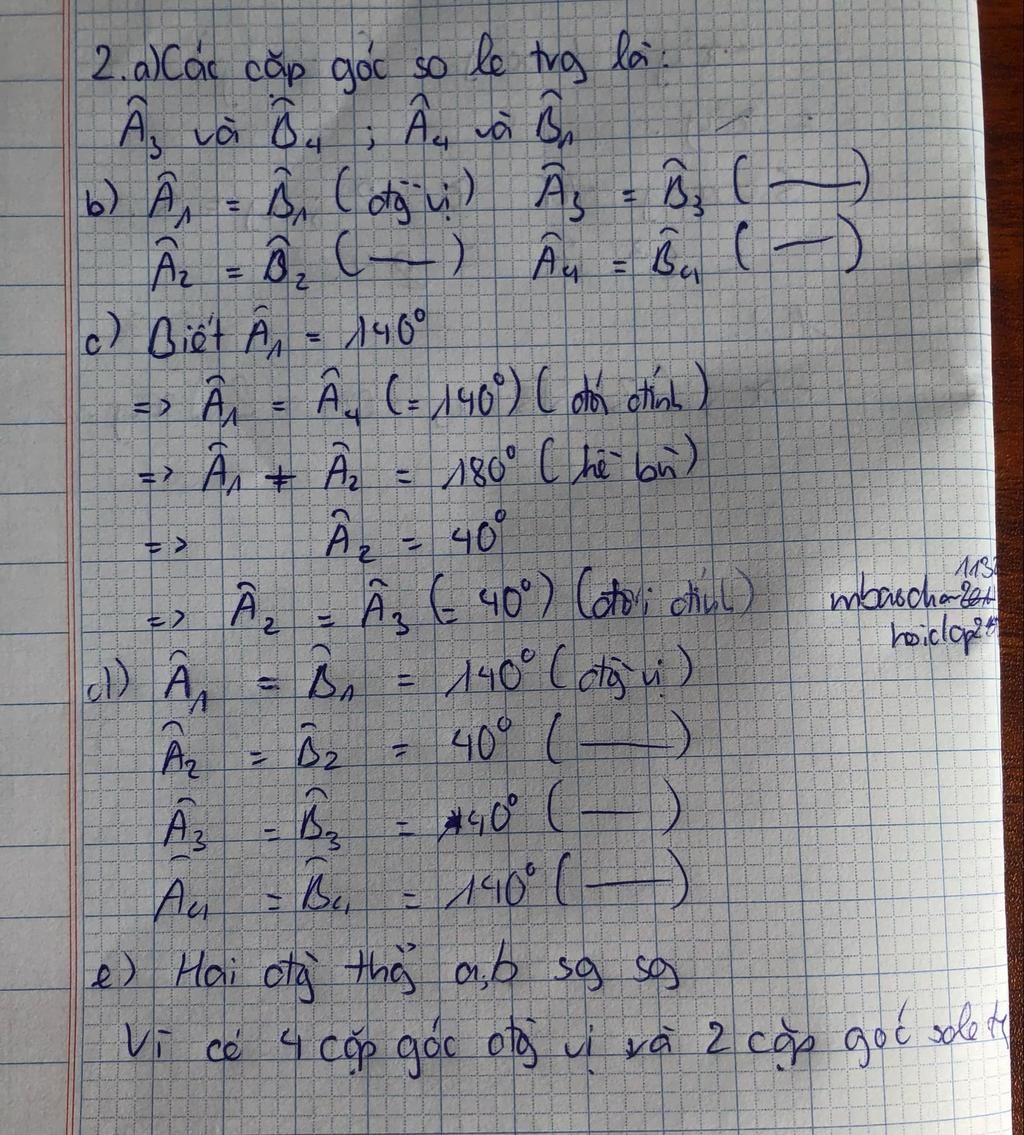 2. a) Các cặp góc so le trg là:
Â₃ và B̂₄ ; Â₄ và B̂₁
b) Â₁ = B̂₁ (đg̀ vị) Â₃ = B̂₃ (——)
Â₂ = B̂₂ (——) Â₄ = B̂₄ (——)
c) Biết Â₁ = 140°
=> Â₁ = Â₄ (= 140°) (đối đỉnh)
=> Â₁ + Â₂ = 180° (kề bù)
=> Â₂ = 40°
=> Â₂ = Â₃ (= 40°) (đối đỉnh)
d) Â₁ = B̂₁ = 140° (đg̀ vị)
Â₂ = B̂₂ = 40° (——)
Â₃ = B̂₃ = 40° (——)
Â₄ = B̂₄ = 140° (——)
e) Hai đg̀ thg̉ a,b sg sg
Vì có 4 cặp góc đg̀ vị và 2 cặp góc sole